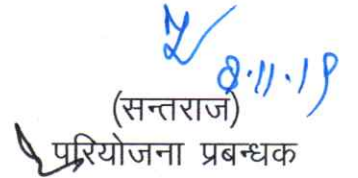 8.11.19
(सन्तराज)
परियोजना प्रबन्धक